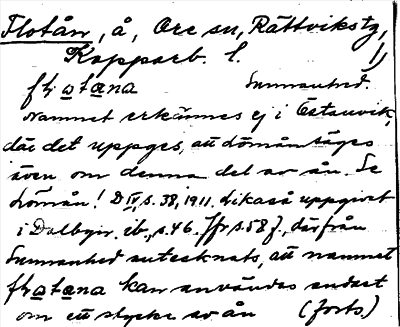 Flotån, å, Ore sn, Rättvikstg,
Kopparb. l. 1)
Sunnanhed.
Namnet erkännes ej i Östanvik,
där det uppges, att dömån säges
även om denna del av ån. Se
Dömån! D IV, s. 38, 1911. Likaså uppgivet
i Dalbyn, ib., s. 46. Jfr s. 58 f., därifrån
Sunnanhed antecknats, att namnet
kan användas endast
om ett stycke av ån (forts.)